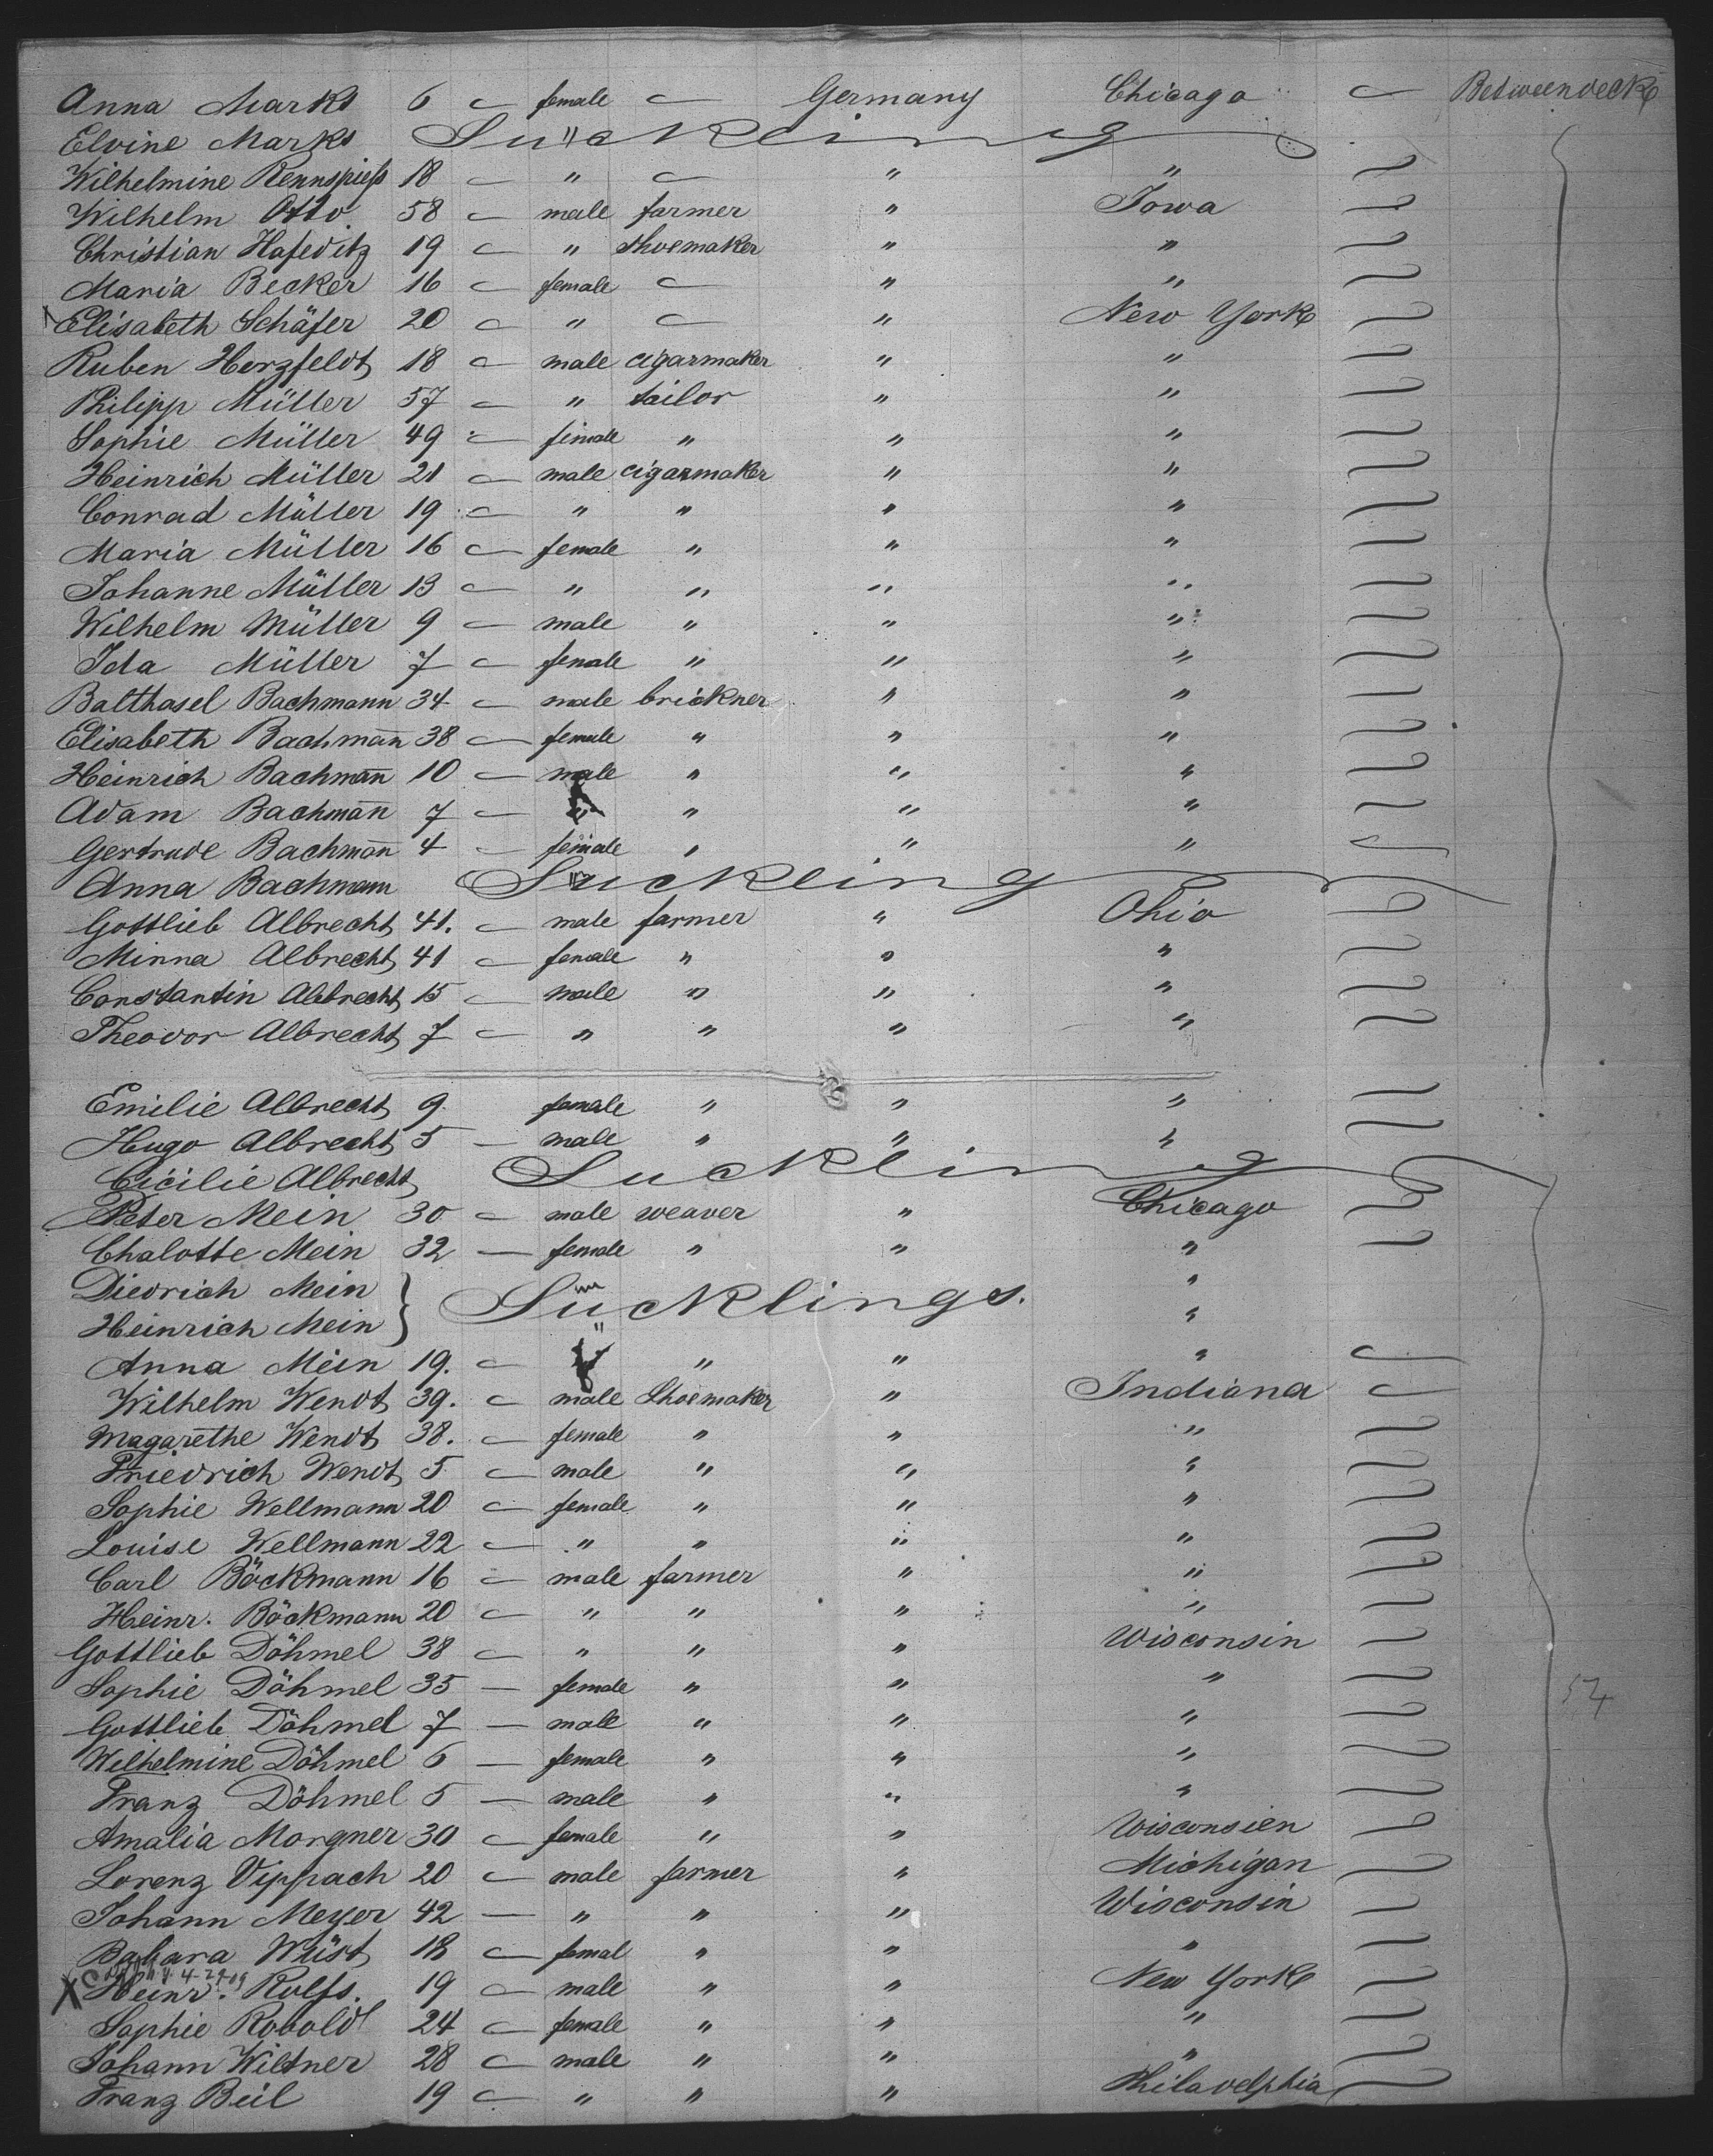 Anna Marks 6 — female — Germany Chicago — Betweendeck
Elvine Marks " Suckling
Wilhelmine Rennspiess 18 — " — " "
Wilhelm Otto 58 — male farmer " Iowa
Christian Hafeditz 19 — " shoemaker " "
Maria Becker 16 — female — " "
Elisabeth Schäfer 20 — " — " New York
Ruben Herzfeldt 18 — male cigarmaker " "
Philipp Müller 57 — " tailor " "
Sophie Müller 49 — female " " "
Heinrich Müller 21 — male cigarmaker " "
Conrad Müller 19 — " " " "
Maria Müller 16 — female " " "
Johanne Müller 13 — " " " "
Wilhelm Müller 9 — male " " "
Ida Müller 7 — female " " "
Balthasel Bachmann 34 — male brickner " "
Elisabeth Bachmañ 38 — female " " "
Heinrich Bachmañ 10 — male " " "
Adam Bachmañ 7 — " " " "
Gertrude Bachmañ 4 — female " " "
Anna Bachmann " Suckling
Gottlieb Albrecht 41. — male farmer " Ohio
Minna Albrecht 41 — female " " "
Constantin Albrecht 15 — male " " "
Theodor Albrecht 7 — " " " "
Emilie Albrecht 9 female " " "
Hugo Albrecht 5 — male " " "
Cicilie Albrecht Suckling
Peter Mein 30 — male weaver " Chicago
Chalotte Mein 32 — female " " "
Diedrich Mein } Sucklings. "
Heinrich Mein " "
Anna Mein 19. — f " " "
Wilhelm Wendt 39. — male Shoemaker " Indiana
Magarethe Wendt 38. — female " " "
Friedrich Wendt 5 — male " " "
Sophie Wellmann 20 — female " " "
Louise Wellmann 22 — " " " "
Carl Böckmann 16 — male farmer " "
Heinr. Böckmann 20 — " " " "
Gottlieb Döhmel 38 — " " " Wisconsin
Sophie Döhmel 35 — female " " "
Gottlieb Döhmel 7 — male " " "
Wilhelmine Döhmel 6 — female " " "
Franz Döhmel 5 — male " " "
Amalia Morgner 30 — female " " Wisconsien
Lorenz Vippach 20 — male farmer " Michigan
Johann Meyer 42 — " " " Wisconsin
Babara Wüst 18 — femal " " "
X Heinr. Rolfs. 19 — male " " New York
Sophie Robold 24 — female " " "
Johann Wiltner 28 — male " " "
Franz Beil 19 — " " " Philadelphia
54